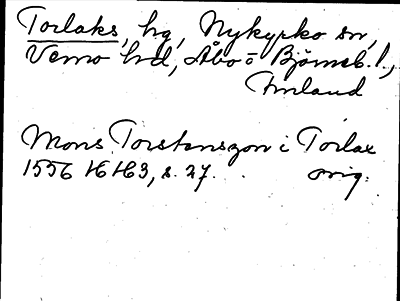 Torlaks, hg, Nykyrko sn,
Vemo hd, Åbo o Björneb. l.,
Finland
Mons Torstensson i Torlax
1556 HH3, s. 27. orig.